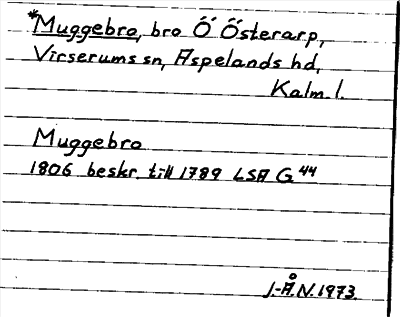 *Muggebro, bro Ö Österarp,
Virserums sn, Aspelands hd,
Kalm. l.
Muggebro
1806 beskr. till 1789 LSA G 44
J.-Å.N. 1973.